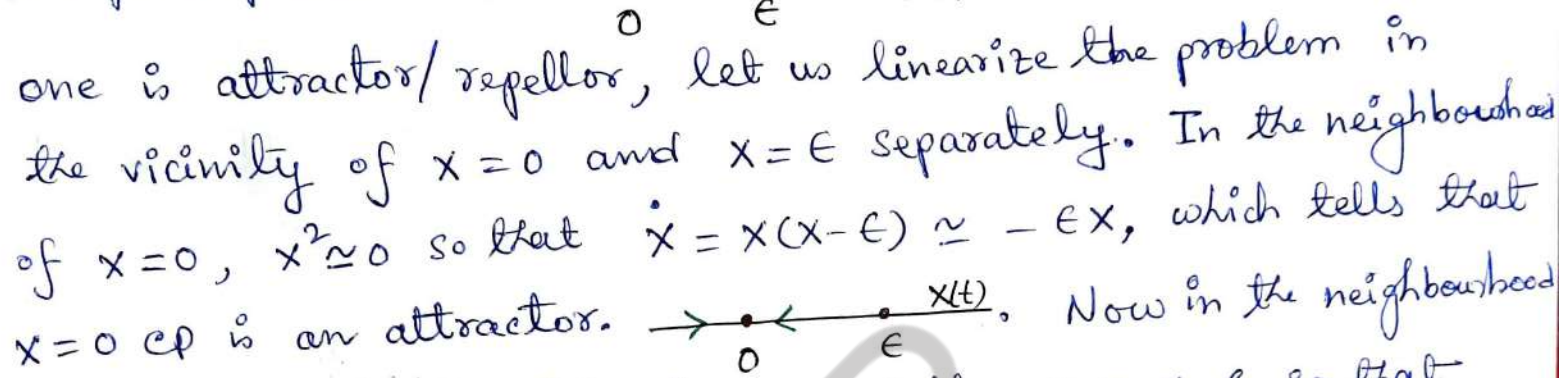 0 ϵ
one is attractor/ repellor, let us linearize the problem in
the vicinity of x=0 and x=ϵ separately. In the neighbourhood
of x=0, x²≃0 so that ẋ = x(x-ϵ) ≃ -ϵx, which tells that
x=0 cp is an attractor. 0 ϵ x(t). Now in the neighbourhood
that